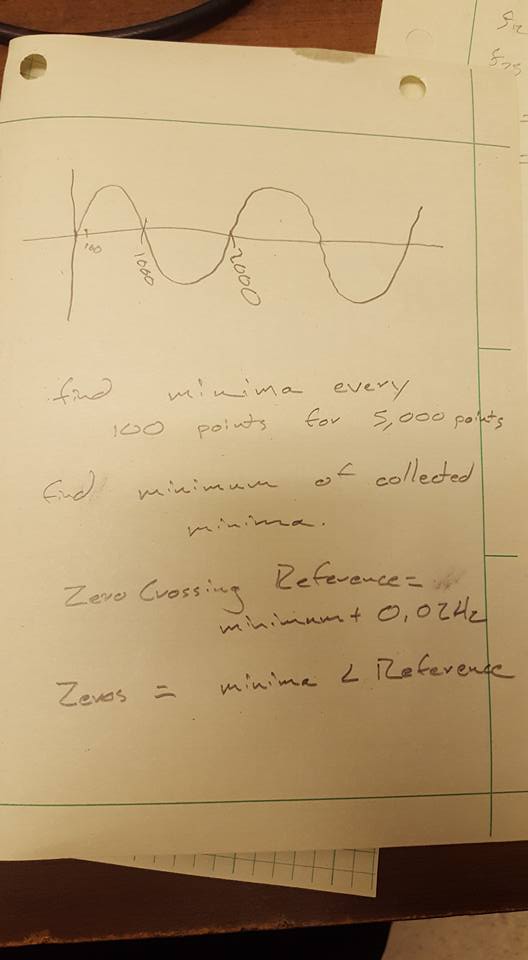 100
1000
2000
find minima every
100 points for 5,000 points
find minimum of collected
minima.
Zero Crossing Reference =
minimum + 0.02Hz
Zeros = minima < Reference